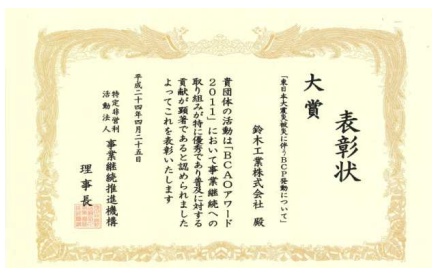 表彰状
大賞
「東日本大震災被災に伴うBCP発動について」
鈴木工業株式会社 殿
貴団体の活動は「BCAOアワード
2011」において事業継続への
取り組みが特に優秀であり普及に対する
貢献が顕著であると認められました
よってこれを表彰いたします
平成二十四年四月二十五日
特定非営利
活動法人 事業継続推進機構
理事長